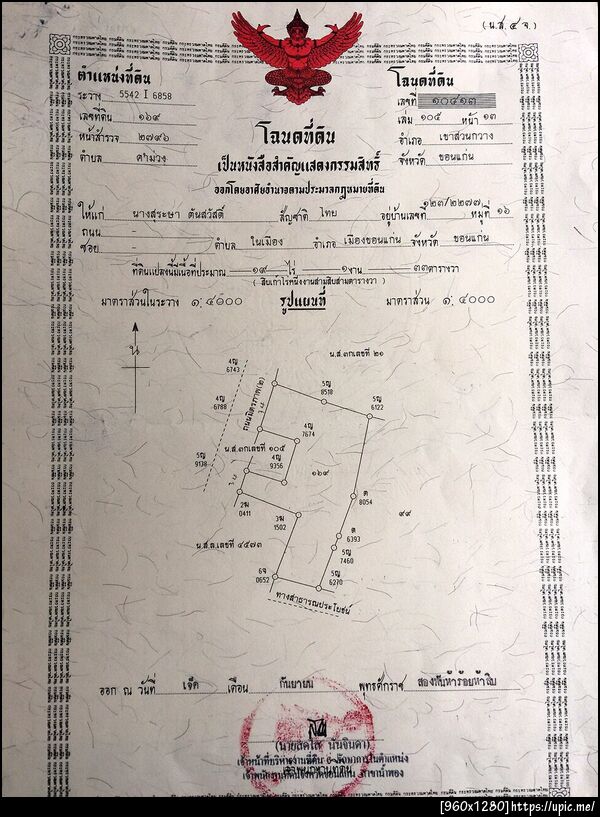 (น.ส. ๔ จ.)
ตำแหน่งที่ดิน
ระวาง 5542 I 6858
เลขที่ดิน ๑๖๙
หน้าสำรวจ ๒๗๙๖
ตำบล คำม่วง
โฉนดที่ดิน
เลขที่ ๑๐๔๑๓
เล่ม ๑๐๕ หน้า ๑๓
อำเภอ เขาสวนกวาง
จังหวัด ขอนแก่น
โฉนดที่ดิน
เป็นหนังสือสำคัญแสดงกรรมสิทธิ์
ออกโดยอาศัยอำนาจตามประมวลกฎหมายที่ดิน
ให้แก่ นางสุระษา ตันสวัสดิ์ สัญชาติ ไทย อยู่บ้านเลขที่ ๑๒๓/๒๒๗๗ หมู่ที่ ๑๖
ถนน -
ซอย - ตำบล ในเมือง อำเภอ เมืองขอนแก่น จังหวัด ขอนแก่น
ที่ดินแปลงนี้มีเนื้อที่ประมาณ ๑๙ ไร่ ๑ งาน ๓๓ ตารางวา
(สิบเก้าไร่หนึ่งงานสามสิบสามตารางวา)
มาตราส่วนในระวาง ๑:๔๐๐๐ รูปแผนที่ มาตราส่วน ๑:๔๐๐๐
น
น.ส.๓ก เลขที่ ๒๑
4ญ
6743
4ญ
6788
5ญ
9138
ถนนมิตรภาพ(๒)
5ญ
8518
5ญ
6122
4ญ
7674
น.ส.๓ก เลขที่ ๑๐๕
4ญ
9356
๑๖๙
ต
8054
๙๙
2ฆ
0411
3ฆ
1502
ต
6393
5ญ
7460
น.ส.ล. เลขที่ ๔๕๗๓
6จ
0652
5ญ
6270
ทางสาธารณประโยชน์
ออก ณ วันที่ เจ็ด เดือน กันยายน พุทธศักราช สองพันห้าร้อยห้าสิบ